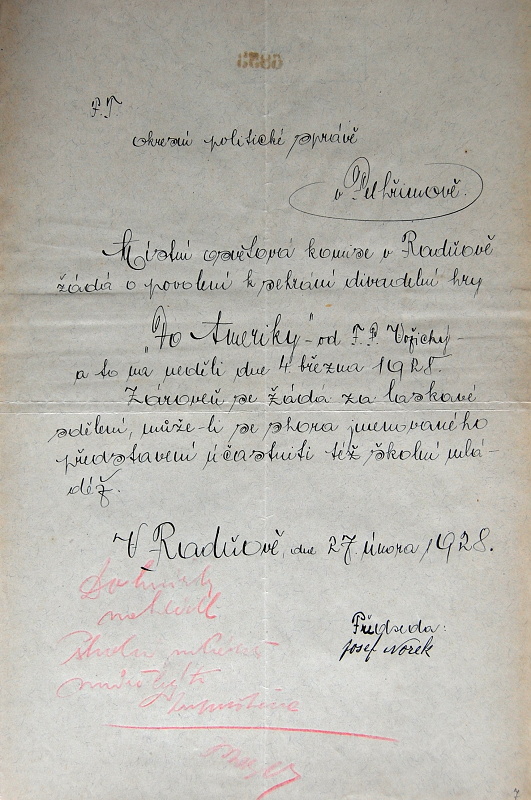 6833
P. T.
okresní politické správě
v Pelhřimově.
Místní osvětová komise v Raduňově
žádá o povolení k sehrání divadelní hry
"Do Ameriky" - od F. P. Vořichy -
a to na neděli dne 4. března 1928.
Zároveň se žádá za laskavé
sdělení, může-li se shora jmenovaného
představení účastniti též školní mlá-
dež.
V Raduňově, dne 27. února 1928.
Předseda:
Josef Norek
7